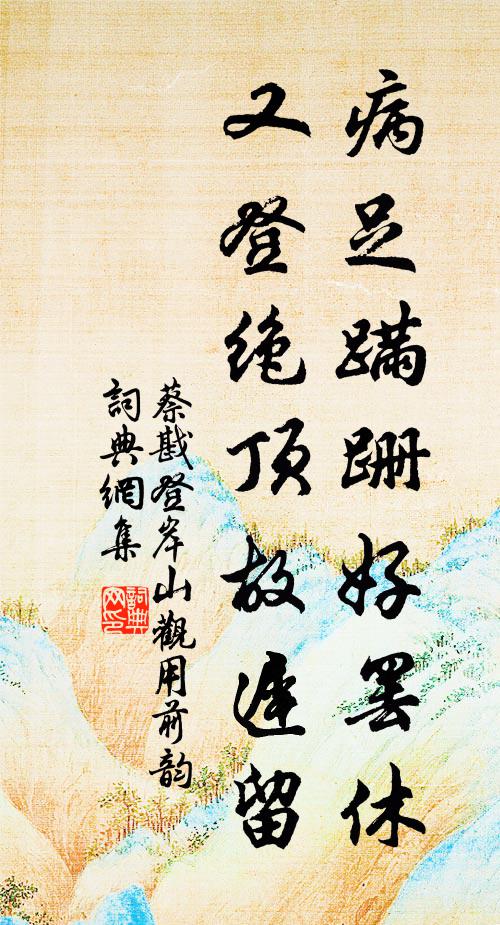 病足蹣跚好罢休
又登绝顶故遲留
蔡戡登岸山觀用前韵
詞典網集
詞典网印